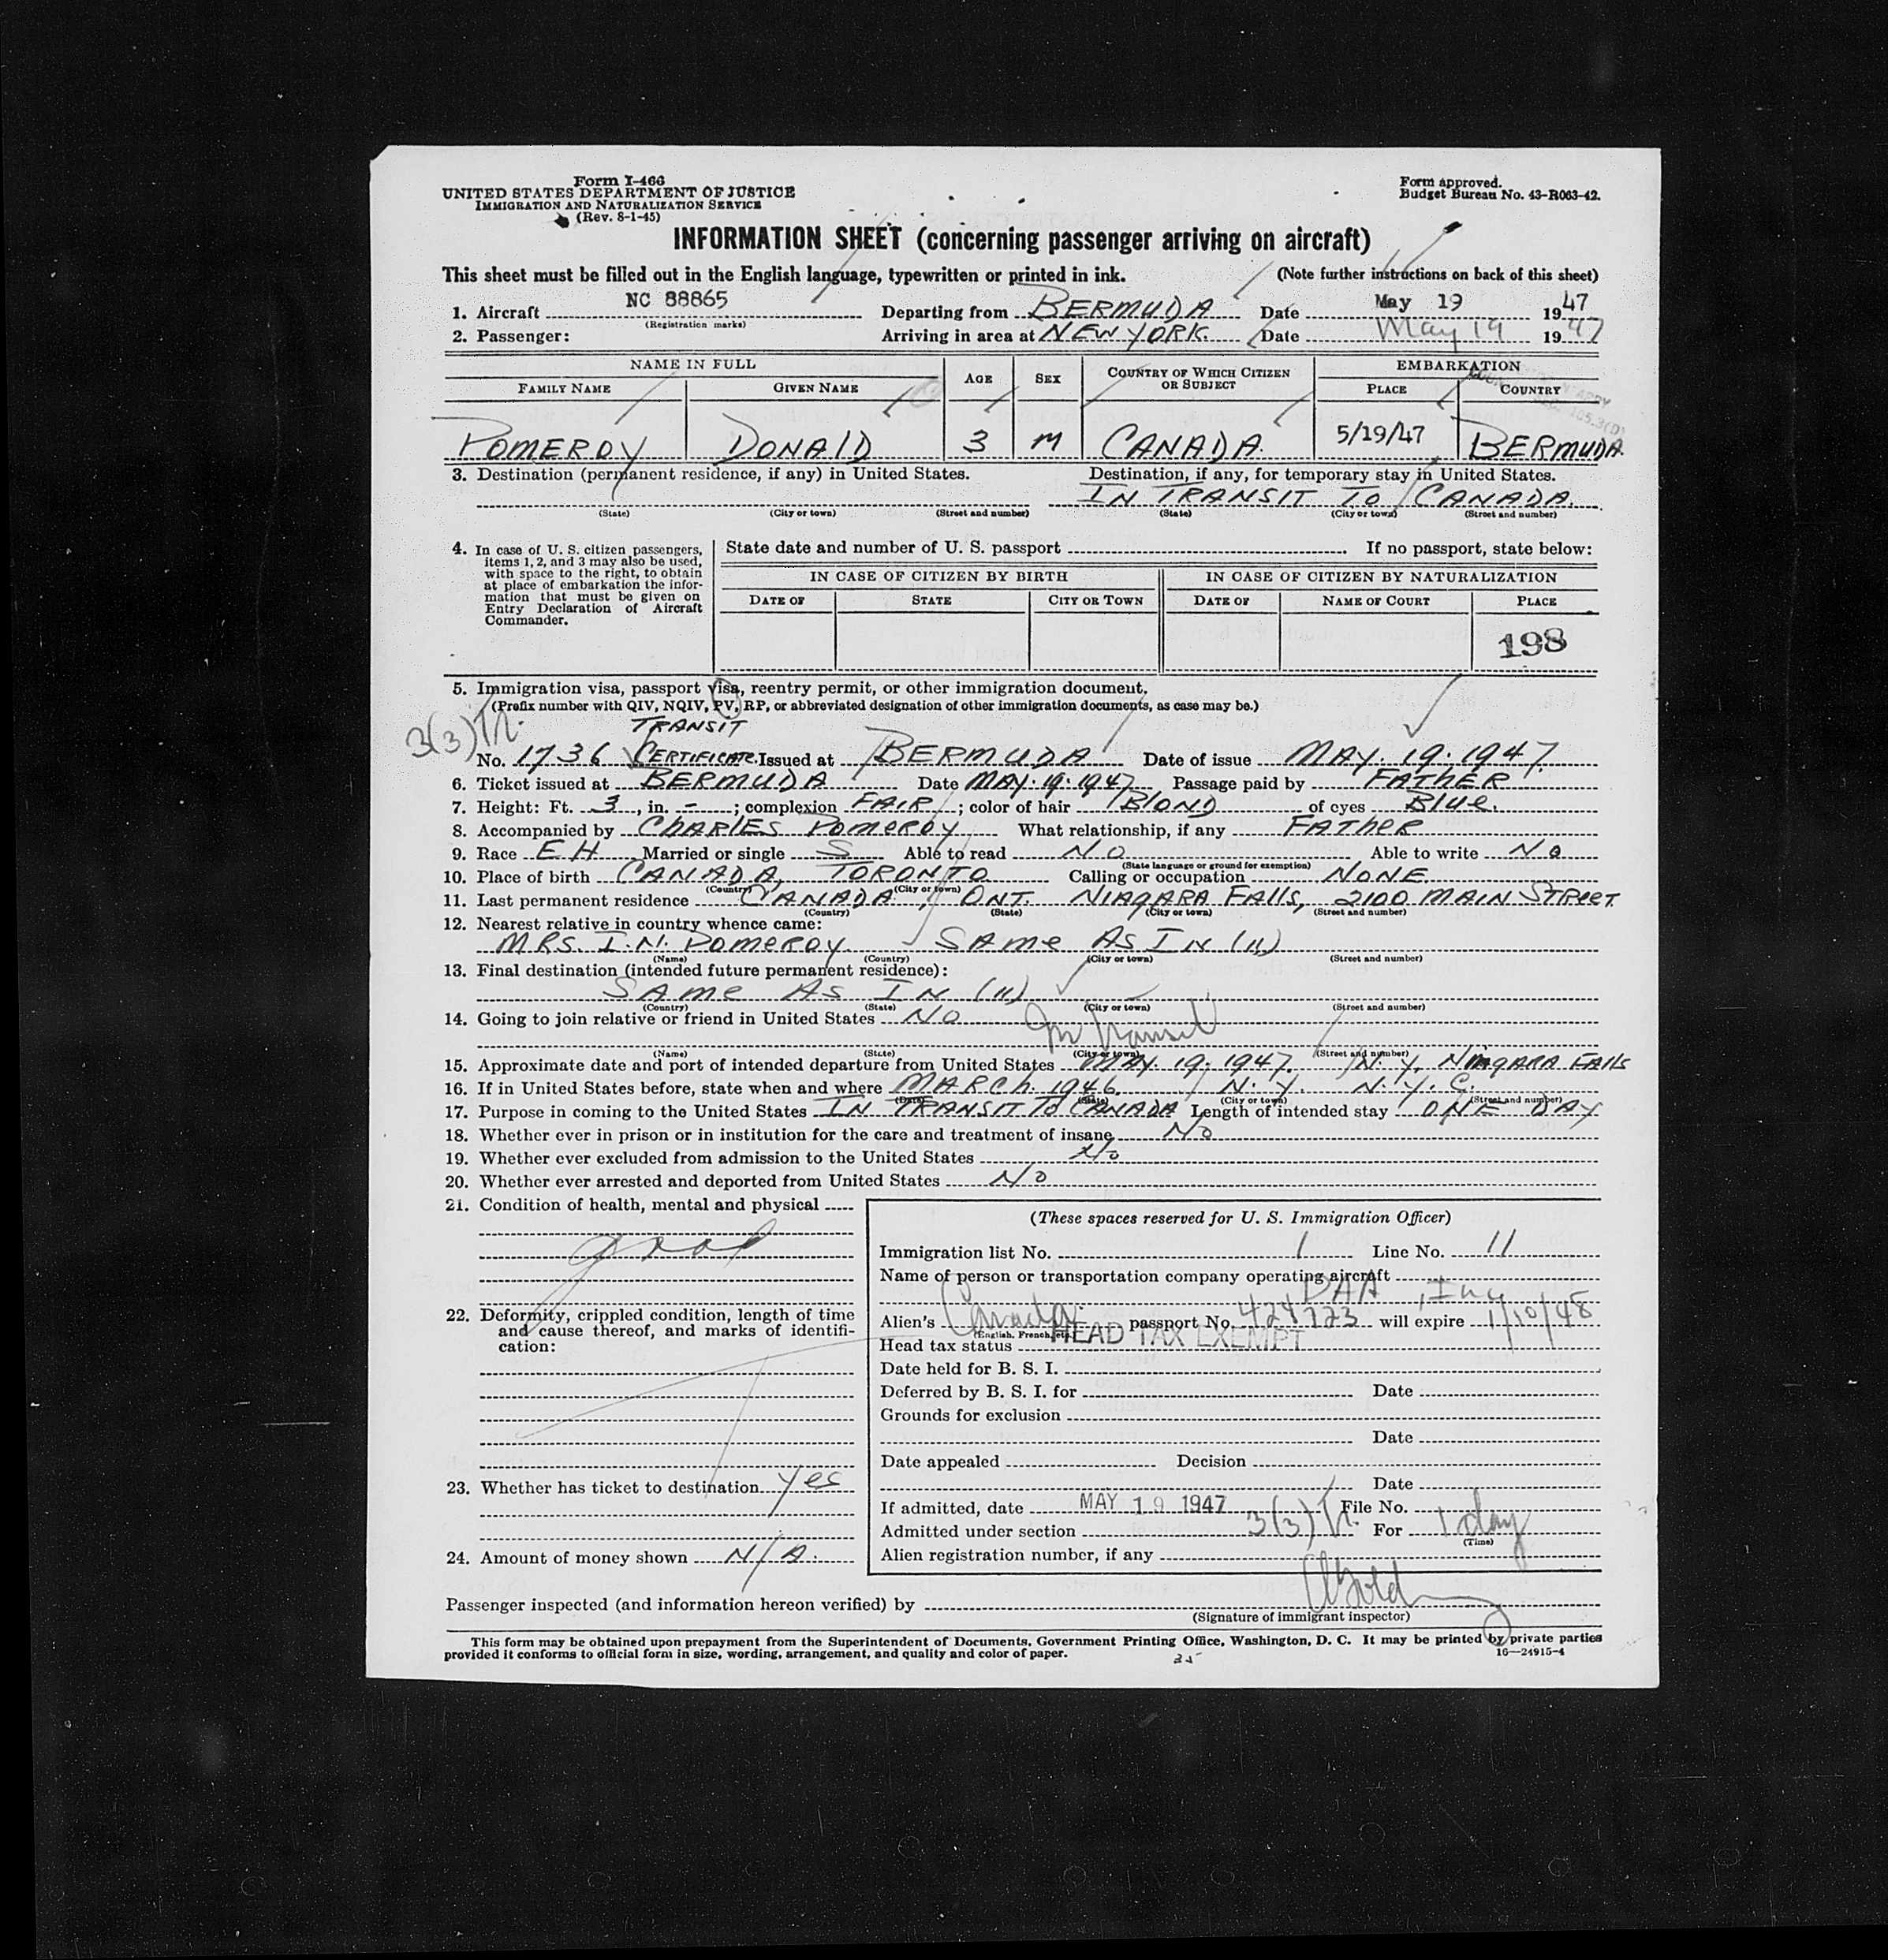 Form I-466
UNITED STATES DEPARTMENT OF JUSTICE
IMMIGRATION AND NATURALIZATION SERVICE
(Rev. 8-1-45)
Form approved.
Budget Bureau No. 43-R063-42.
INFORMATION SHEET (concerning passenger arriving on aircraft)
This sheet must be filled out in the English language, typewritten or printed in ink. (Note further instructions on back of this sheet)
1. Aircraft NC 88865 Departing from BERMUDA Date May 19 1947
(Registration marks)
2. Passenger: Arriving in area at NEW YORK. Date May 19 1947
NAME IN FULL AGE SEX COUNTRY OF WHICH CITIZEN OR SUBJECT EMBARKATION
FAMILY NAME GIVEN NAME PLACE COUNTRY
POMEROY DONALD 3 M CANADA. 5/19/47 BERMUDA.
3. Destination (permanent residence, if any) in United States. Destination, if any, for temporary stay in United States.
IN TRANSIT TO CANADA.
(State) (City or town) (Street and number) (State) (City or town) (Street and number)
4. In case of U. S. citizen passengers, items 1, 2, and 3 may also be used, with space to the right, to obtain at place of embarkation the information that must be given on Entry Declaration of Aircraft Commander.
State date and number of U. S. passport If no passport, state below:
IN CASE OF CITIZEN BY BIRTH IN CASE OF CITIZEN BY NATURALIZATION
DATE OF STATE CITY OR TOWN DATE OF NAME OF COURT PLACE
198
5. Immigration visa, passport visa, reentry permit, or other immigration document.
(Prefix number with QIV, NQIV, PV, RP, or abbreviated designation of other immigration documents, as case may be.)
3(3)Tr.
TRANSIT
No. 1736 CERTIFICATE. Issued at BERMUDA Date of issue MAY. 19. 1947.
6. Ticket issued at BERMUDA Date MAY. 19. 1947 Passage paid by FATHER
7. Height: Ft. 3, in. -; complexion FAIR; color of hair BLOND of eyes Blue.
8. Accompanied by CHARLES POMEROY What relationship, if any FATHER
9. Race E H Married or single S Able to read NO Able to write NO
(State language or ground for exemption)
10. Place of birth CANADA, TORONTO Calling or occupation NONE
(Country) (City or town)
11. Last permanent residence CANADA, ONT. NIAGARA FALLS, 2100 MAIN STREET
(Country) (State) (City or town) (Street and number)
12. Nearest relative in country whence came:
MRS. I.N. POMEROY SAME AS IN (11)
(Name) (Country) (City or town) (Street and number)
13. Final destination (intended future permanent residence):
SAME AS IN (11)
(Country) (State) (City or town) (Street and number)
14. Going to join relative or friend in United States NO In transit
(Name) (State) (City or town) (Street and number)
15. Approximate date and port of intended departure from United States MAY. 19. 1947. N.Y. NIAGARA FALLS
16. If in United States before, state when and where MARCH. 1946. N.Y. N.Y.C.
(Date) (State) (City or town) (Street and number)
17. Purpose in coming to the United States IN TRANSIT TO CANADA Length of intended stay ONE DAY
18. Whether ever in prison or in institution for the care and treatment of insane NO
19. Whether ever excluded from admission to the United States NO
20. Whether ever arrested and deported from United States NO
21. Condition of health, mental and physical
good
22. Deformity, crippled condition, length of time and cause thereof, and marks of identification:
23. Whether has ticket to destination yes
24. Amount of money shown N/A.
(These spaces reserved for U. S. Immigration Officer)
Immigration list No. 1 Line No. 11
Name of person or transportation company operating aircraft
PAA, Inc
Alien's Canada. passport No. 424723 will expire 1/10/48
(English, French, etc.)
Head tax status HEAD TAX EXEMPT
Date held for B. S. I.
Deferred by B. S. I. for Date
Grounds for exclusion
Date
Date appealed Decision
Date
If admitted, date MAY 19 1947 File No.
Admitted under section 3(3) Tr. For 1 day
(Time)
Alien registration number, if any
Passenger inspected (and information hereon verified) by
(Signature of immigrant inspector)
This form may be obtained upon prepayment from the Superintendent of Documents, Government Printing Office, Washington, D. C. It may be printed by private parties
provided it conforms to official form in size, wording, arrangement, and quality and color of paper. 16—24915-4
35